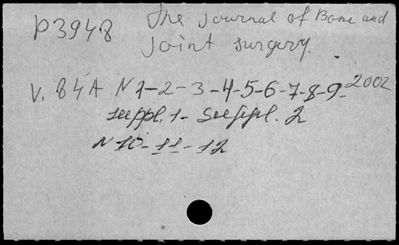 p3948 The Journal of Bone and
Joint surgery.
V. 84A N 1-2-3-4-5-6-7-8-9-2002
suppl. 1 - suppl. 2
N 10-11-12